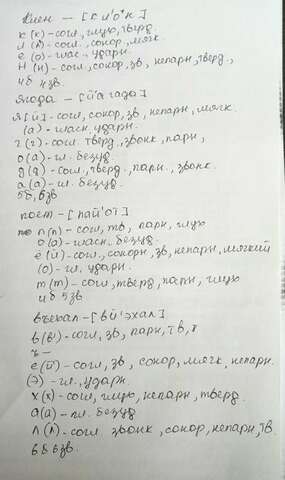 Клен — [к л'о н]
к (к) - согл, глух, тверд.
л (л) согл, сонор, мягк.
е (о) - глас, ударн.
н (н) - согл, сонор, зв, непарн, тверд.,
4б 4зв.
Ягода — [й'а гада]
я [й] - согл, сонор, зв, непарн, мягк.
(а) - гласн, ударн.
г (г) - согл. тверд, звонк, парн,
о (а) - гл. безуд.
д (д) - согл, тверд, парн., звонк.
а (а) - гл. безуд.
5б, 6зв
поет — [пай'от]
п (п) - согл, тв, парн, глух
о (а) - гласн, безуд.
е (й) - согл, сонорн, зв, непарн, мягкий
(о) - гл. ударн.
т (т) - согл, тверд, парн, глух
4б 5зв
въехал - [вй'эхал]
в (в') - согл, зв, парн, тв,
ъ —
е (й') - согл, зв, сонор, мягк, непарн.
(э) - гл, ударн.
х (х) - согл, глух, непарн, тверд.
а (а) - гл. безуд
л (л) - согл звонк, сонор, непарн, тв.
6б 6зв.